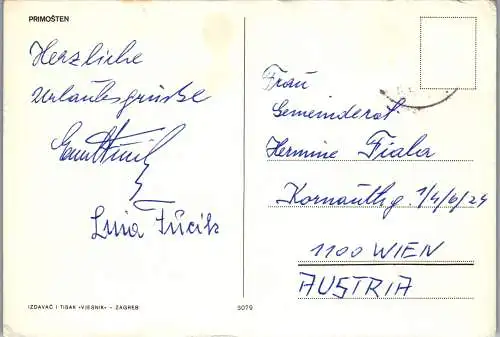 PRIMOŠTEN
Herzliche
Urlaubsgrüße
Fučik
Frau
Gemeinderat
Hermine Fiala
Kornauthg. 1/4/6/24
1100 WIEN
AUSTRIA
IZDAVAČ I TISAK «VJESNIK» - ZAGREB
5079